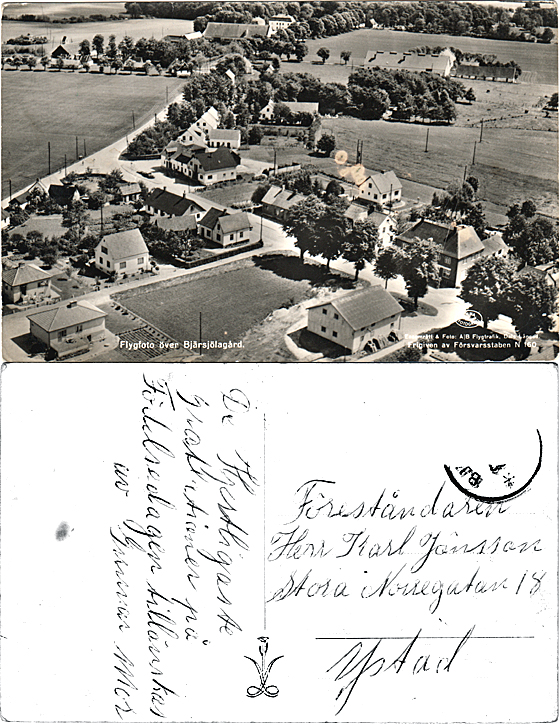 Flygfoto över Bjärsjölagård.
Ensamrätt & Foto: A|B Flygtrafik, Dals Långed
Frigiven av Försvarsstaben N 160
De Hjertligaste
Gratulationer på
Födelsedagen tillönskas
av Gunnar
Föreståndaren
Herr Karl Jönsson
Stora Norregatan 18
Ystad